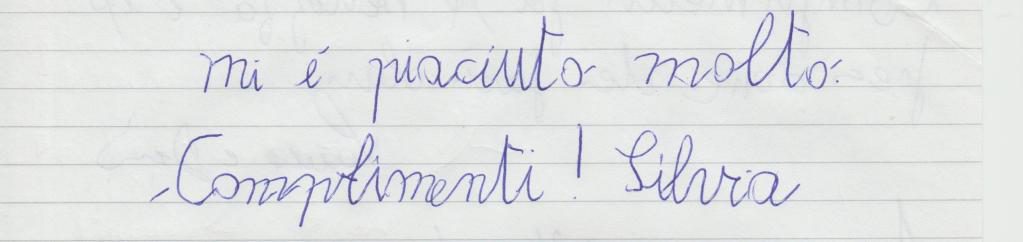 mi é piaciuto molto.
Complimenti! Silvia